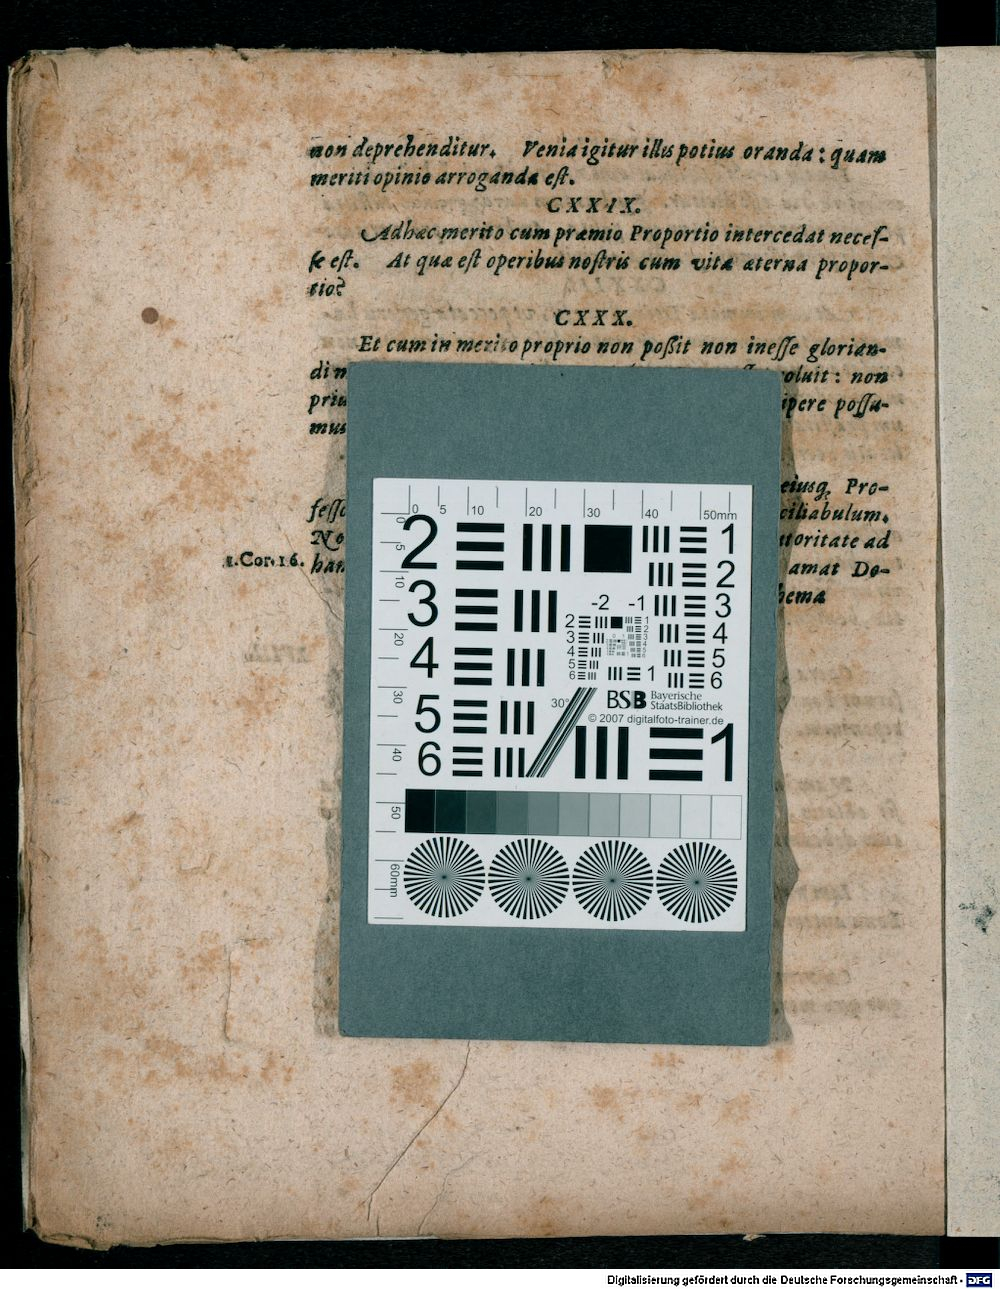 non deprehenditur. Venia igitur illis potius oranda: quam
meriti opinio arroganda est.
CXXIX.
Adhæc merito cum præmio Proportio intercedat neces-
se est. At quæ est operibus nostris cum vitæ æterna propor-
tio?
CXXX.
Et cum in merito proprio non poßit non inesse glorian-
di
oluit: non
ipere possu-
mus
eiusq; Pro-
fesso
ciliabulum.
No
ttoritate ad
1. Cor. 16. han
amat Do-
hema
0 5 10 20 30 40 50mm
0 5 10 20 30 40 50 60mm
2 1
2
3 -2 -1 3
2 1
2
3 3
4 4 4 4
5 5 5
6 6 1 6
5 30° BSB Bayerische
StaatsBibliothek
© 2007 digitalfoto-trainer.de
6 1
Digitalisierung gefördert durch die Deutsche Forschungsgemeinschaft - DFG